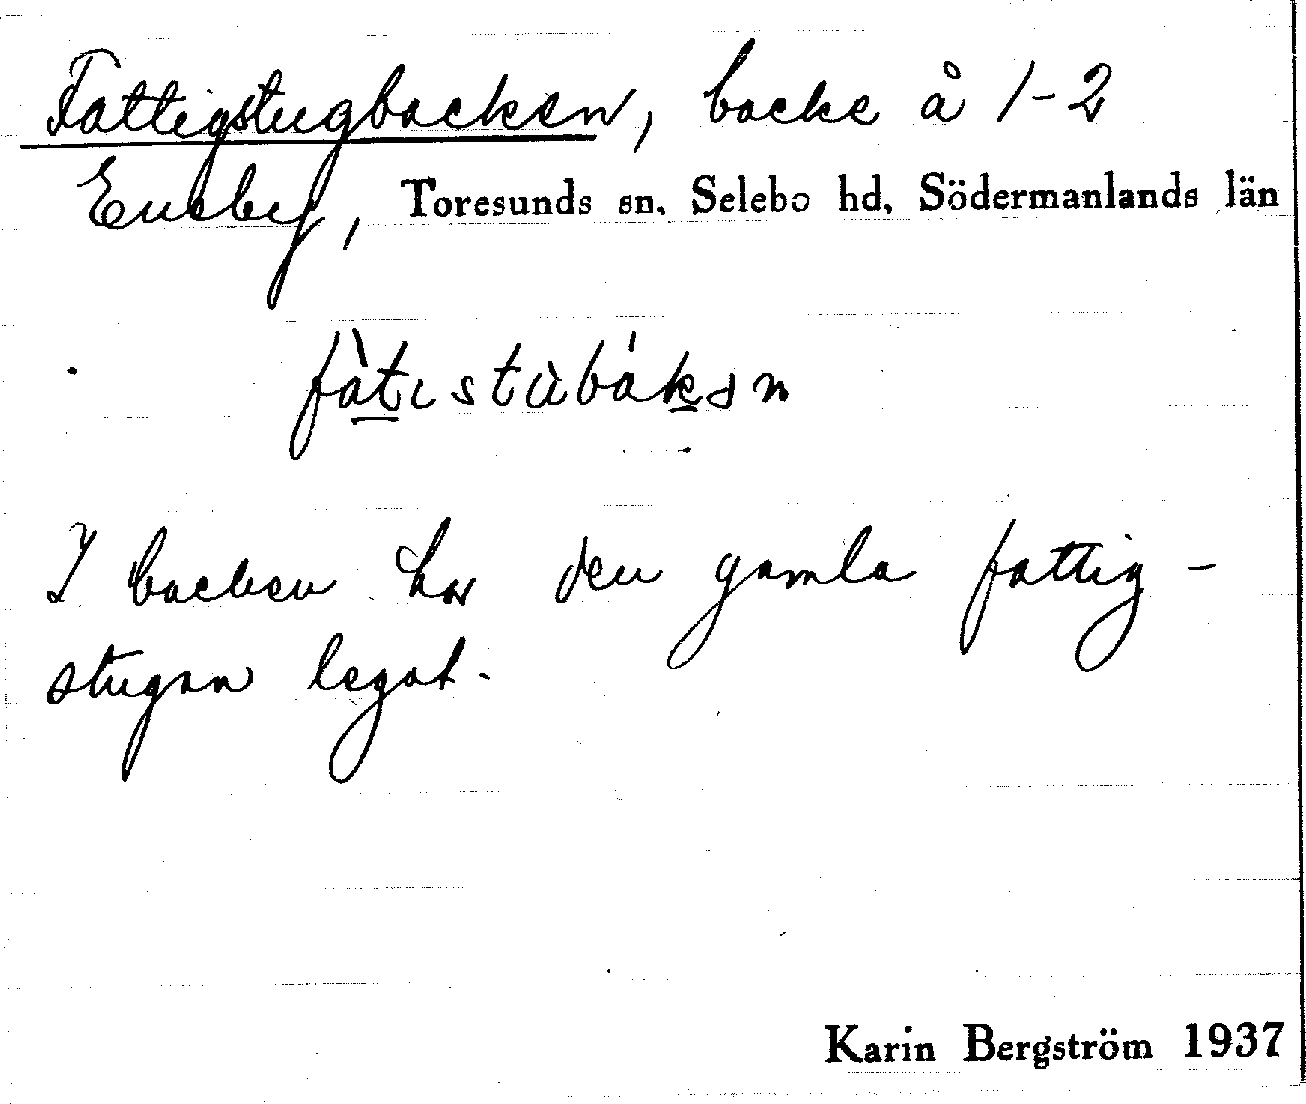 Fattigstugbacken, backe å 1-2
Eneby, Toresunds sn, Selebo hd, Södermanlands län
fàtıstùbákən
I backen har den gamla fattig-
stugan legat.
Karin Bergström 1937